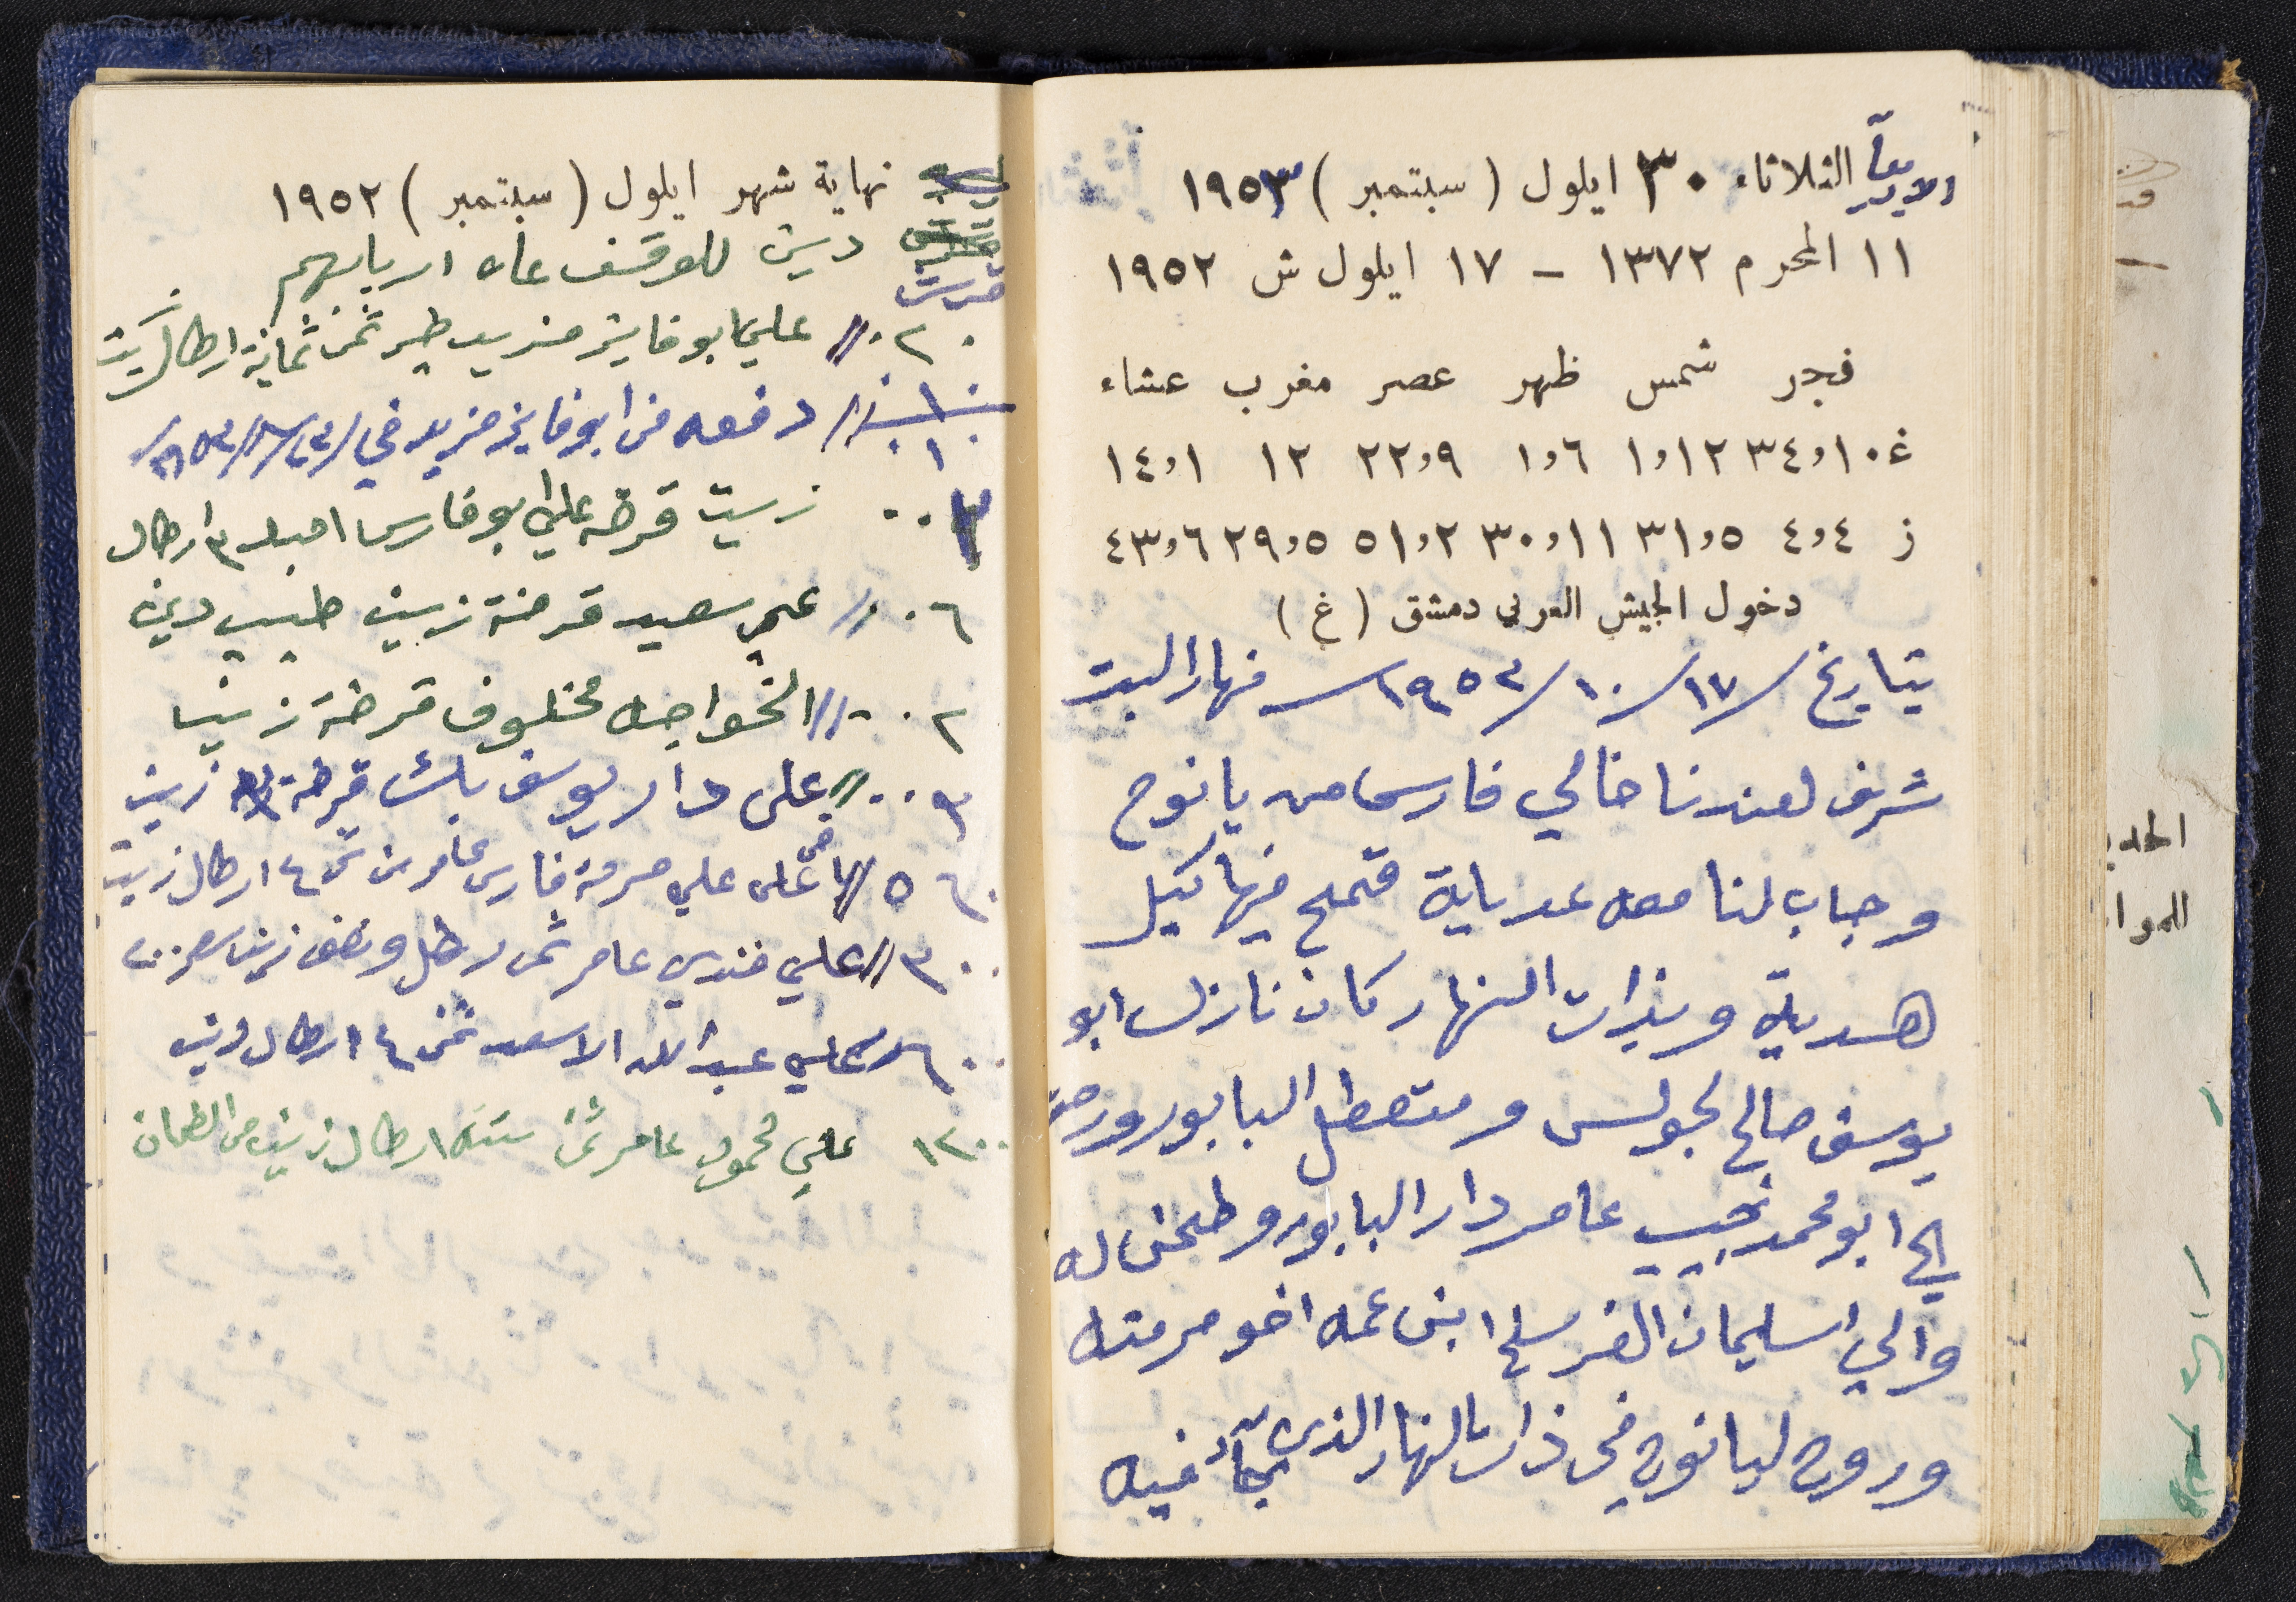 الاربعآ الثلاثاء ٣٠ ايلول ( سبتمبر ) ١٩٥٣
١١ المحرم ١٣٧٢ – ١٧ ايلول ش ١٩٥٢
فجر شمس ظهر عصر مغرب عشاء
غ ١٠و٣٤ ١٢و١ ٦و١ ٩و٢٢ ١٢ ١و١٤
ز ٤و٤ ٥و٣١ ١١و٣٠ ٢و٥١ ٥و٢٩ ٦و٤٣
دخول الجيش العربي دمشق ( غ )
بتاريخ ١٧/١٠/١٩٥٣ نهار السبت
شرف لعندنا خالي فارس من يانوح
وجاب لنا معه عدباية قمح فيها كيل
هدية وبذات النهار كان نازل ابو
يوسف صالح لجولس ومتعطل البابور ورحت
الى ابو محمد نجيب عامر دار البابور وطحن له
والي سليمان ابن عمه اخو مرمته
وروح ليانوح في ذات النهار الذي جآء فيه
نهاية شهر ايلول ( سبتمبر ) ١٩٥٢
دين للوقف عاه اربابهم
قرش
٢٠٠ // علي ابو فايز مزيد طير ثمن ثمانية ارطال زيت
١٠٠ // دفعه من ابو فايز مزيد في
٣٠٠ زيت قرضه علي ابو فارس ٣ ارطال
٦٠٠ // عمي سعيد قرضة زيت طبيب دين
٢٠٠ // الخواجه مخلوف قرضة زيت
٣٠٠ // على دار يوسف بك قرضة زيت
٥٦٠ // علي حرمة فارس عامر ثمن ٤ ارطال زيت
٣٠٠ // علي فندي عامر ثمن رطل ونصف زيت
٦٠٠ علي عبد الله الاسعد ثمن ٤ ارطال زيت
١٢٠٠ علي محمود عامر ثمن ستة ارطال زيت من الطحان